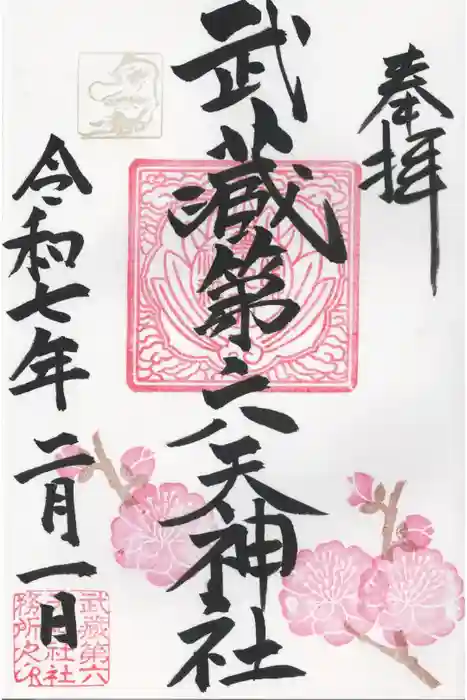 奉拝
武蔵第六天神社
令和七年二月一日
武蔵第六
天神社社
務所之印